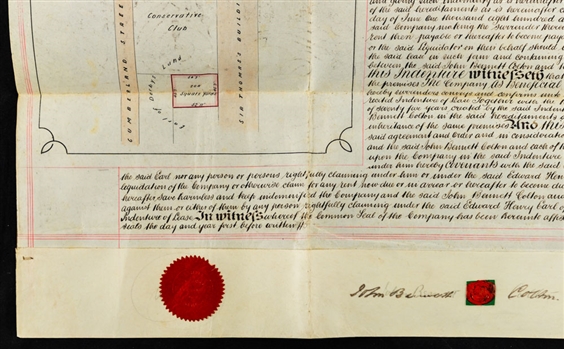 Conservative
Club
CUMBERLAND STREET
SIR THOMAS STREET
Derbys Land
Earl of
of the said hereditaments as is hereafter
day of June One thousand eight hundred a
said Company making the surrender herein
rent then payable or thereafter to become paya
or the said liquidator on their behalf should
the said
between the said John Bennett Colton and
this Indenture witnesseth
the premises The Company as Beneficial
hereby surrenders conveys and confirms unto
recited Indenture of Lease Together with the
of seventy five years created by the said Inden
Bennett Colton in the said hereditaments
inheritance of the same premises And this
said agreement and order and in consideratio
and the said John Bennett Colton and each of
upon the Company in the said Indenture
under him hereby Covenants with the said
the said Earl nor any person or persons rightfully claiming under him or under the said Edward Henr
liquidation of the Company or otherwise claim for any rent now due or in arrear or hereafter to become du
hereafter save harmless and keep indemnified the Company and the said John Bennett Colton
against them or either of them by any person rightfully claiming under the said Edward Henry Earl of
Indenture of Lease In witness whereof the Common Seal of the Company has been hereunto affix
seals the day and year first before written
John B
Colton